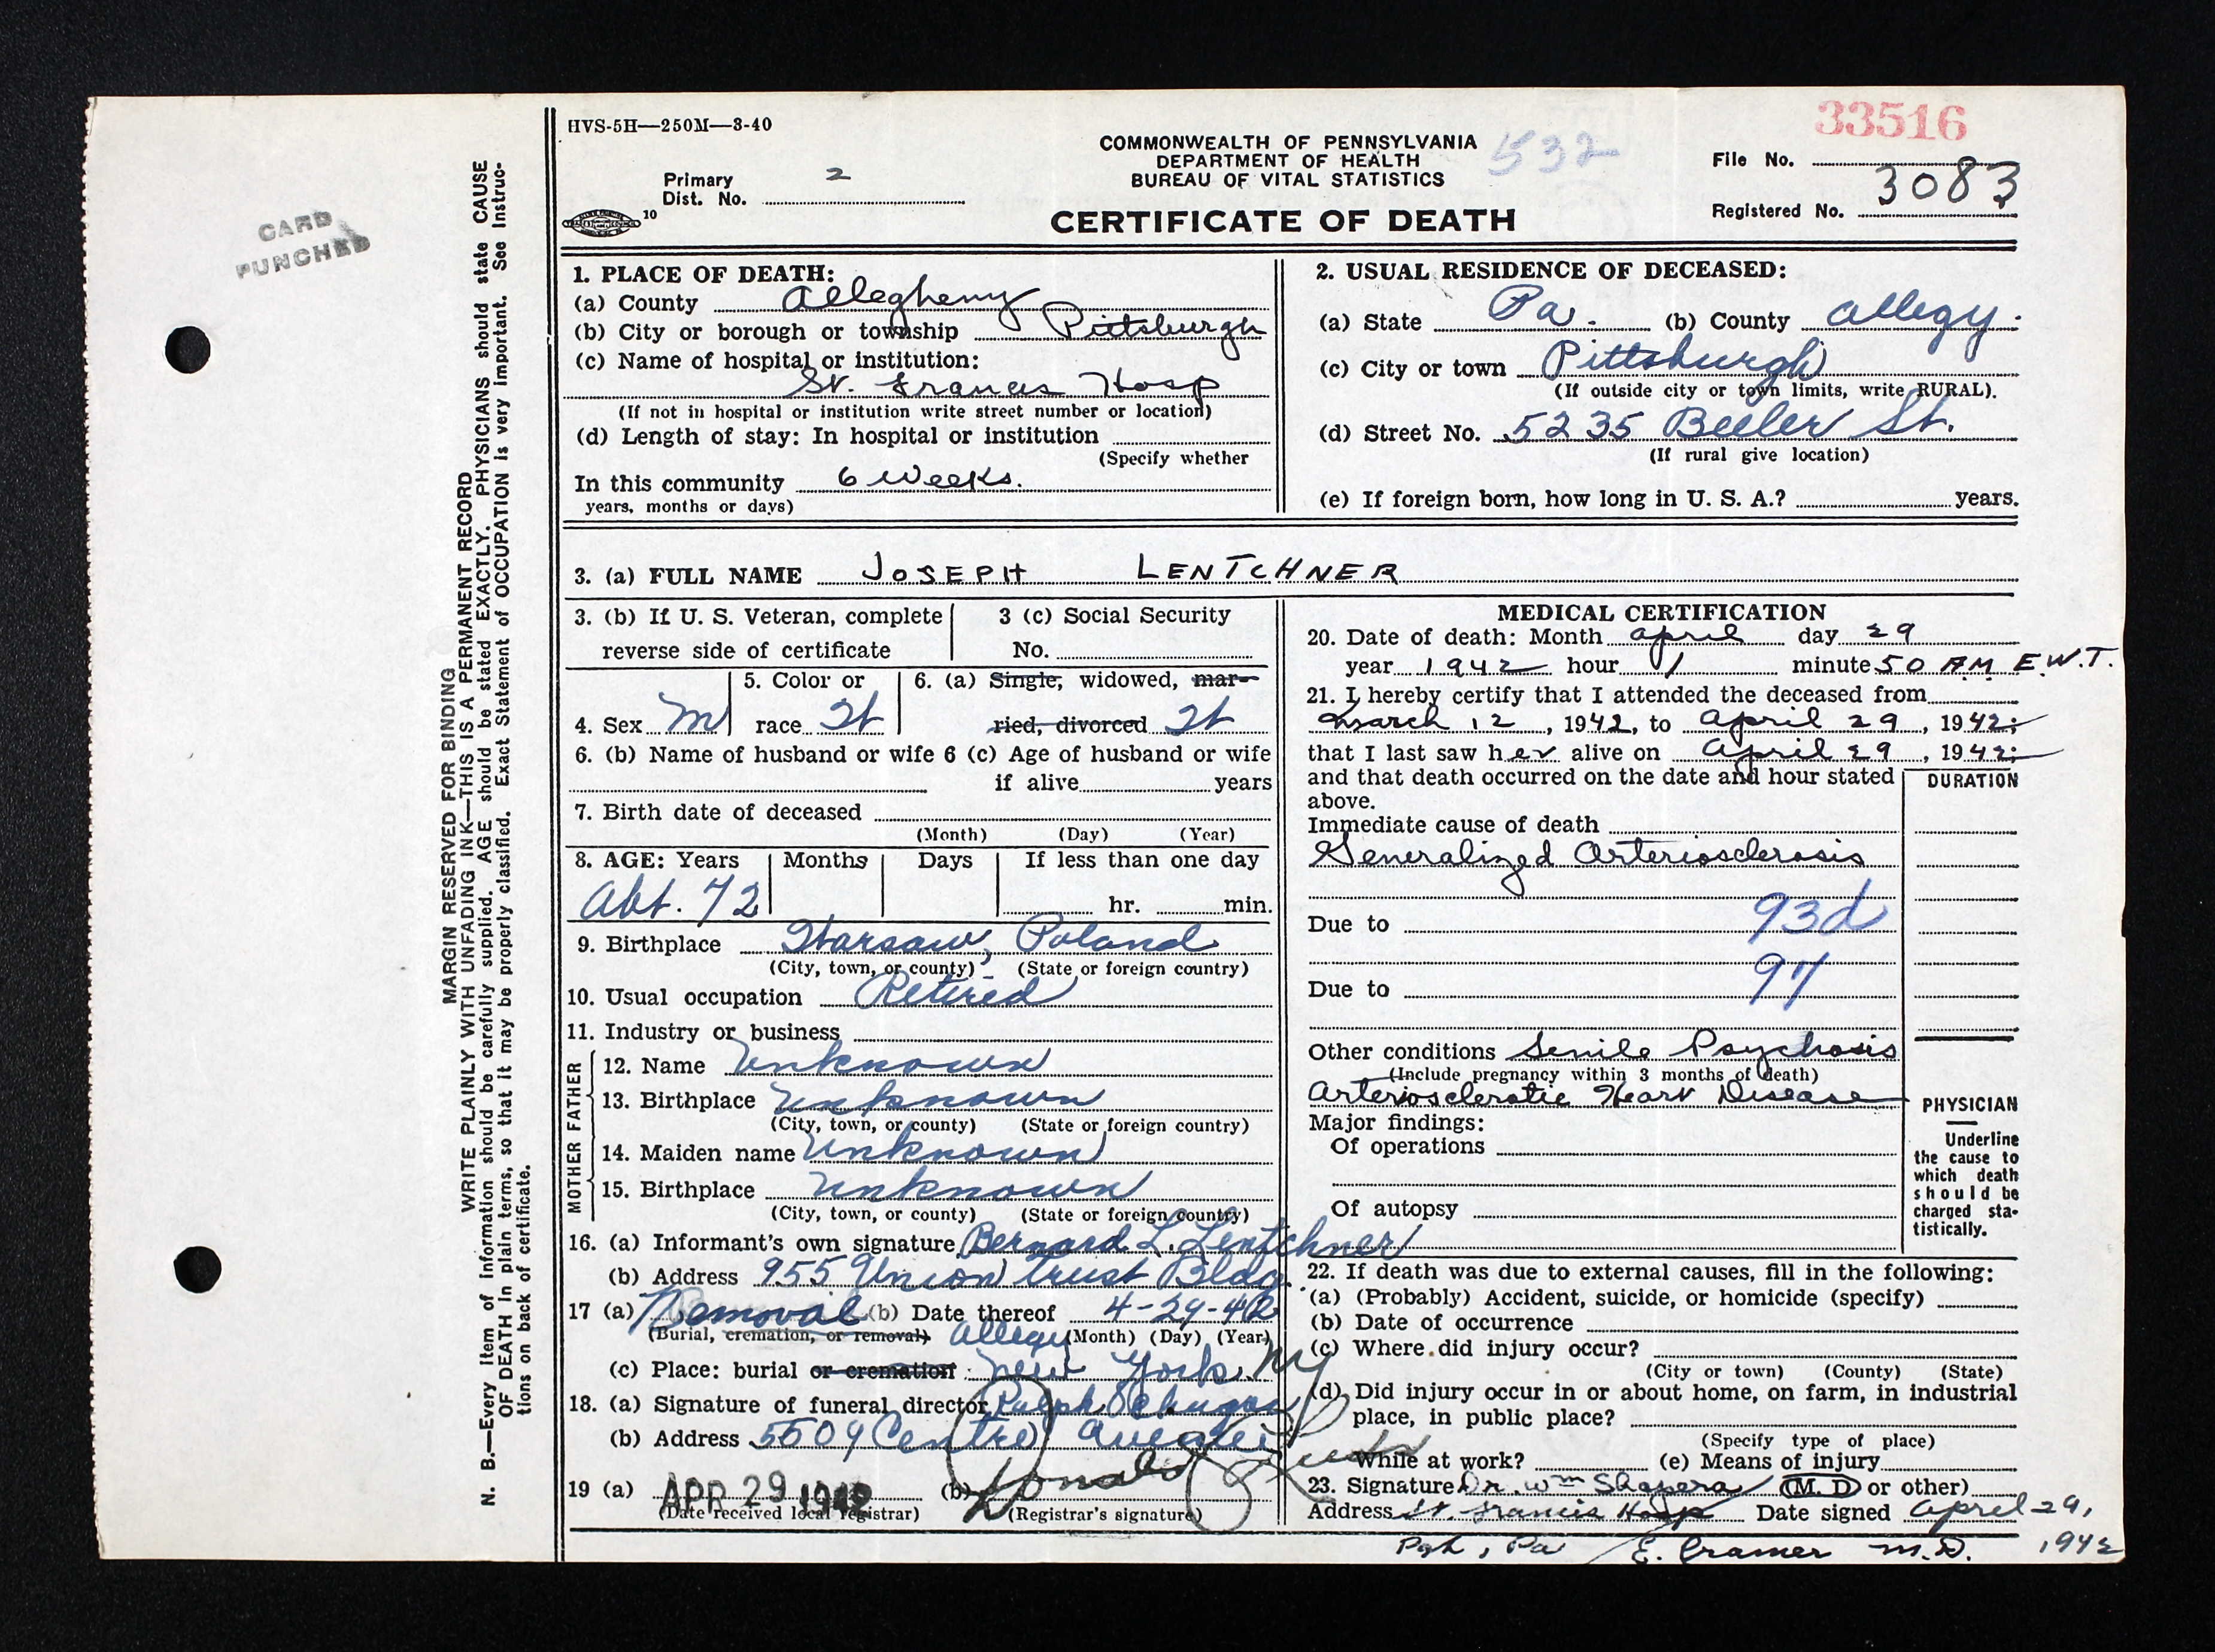 33516
HVS-5H—250M—3-40
COMMONWEALTH OF PENNSYLVANIA
DEPARTMENT OF HEALTH
BUREAU OF VITAL STATISTICS
532
File No.
Primary Dist. No. 2
10
CERTIFICATE OF DEATH
Registered No. 3083
CARD
PUNCHED
MARGIN RESERVED FOR BINDING
WRITE PLAINLY WITH UNFADING INK—THIS IS A PERMANENT RECORD
N. B.—Every item of information should be carefully supplied. AGE should be stated EXACTLY. PHYSICIANS should state CAUSE
OF DEATH in plain terms, so that it may be properly classified. Exact Statement of OCCUPATION is very important. See Instruc-
tions on back of certificate.
1. PLACE OF DEATH:
(a) County Allegheny
(b) City or borough or township Pittsburgh
(c) Name of hospital or institution:
St. Francis Hosp
(If not in hospital or institution write street number or location)
(d) Length of stay: In hospital or institution
(Specify whether
In this community 6 weeks.
years, months or days)
2. USUAL RESIDENCE OF DECEASED:
(a) State Pa. (b) County Allegy.
(c) City or town Pittsburgh
(If outside city or town limits, write RURAL).
(d) Street No. 5235 Beeler St.
(If rural give location)
(e) If foreign born, how long in U. S. A.? years.
3. (a) FULL NAME JOSEPH LENTCHNER
3. (b) If U. S. Veteran, complete
reverse side of certificate
3 (c) Social Security
No.
4. Sex M
5. Color or
race W
6. (a) Single, widowed, mar-
ried, divorced W
6. (b) Name of husband or wife
6 (c) Age of husband or wife
if alive years
7. Birth date of deceased
(Month) (Day) (Year)
8. AGE: Years Months Days If less than one day
Abt. 72 hr. min.
9. Birthplace Warsaw, Poland
(City, town, or county) (State or foreign country)
10. Usual occupation Retired
11. Industry or business
FATHER
12. Name Unknown
13. Birthplace Unknown
(City, town, or county) (State or foreign country)
MOTHER
14. Maiden name Unknown
15. Birthplace Unknown
(City, town, or county) (State or foreign country)
16. (a) Informant's own signature Bernard L. Lentchner
(b) Address 955 Union Trust Bldg.
17 (a) Removal (b) Date thereof 4-29-42
(Burial, cremation, or removal) Allegy (Month) (Day) (Year)
(c) Place: burial or cremation New York. NY
18. (a) Signature of funeral director Ralph Schugar
(b) Address 5509 Centre Avenue
19 (a) APR 29 1942 (b)
(Date received local registrar) (Registrar's signature)
MEDICAL CERTIFICATION
20. Date of death: Month April day 29
year 1942 hour 1 minute 50 A.M. E.W.T.
21. I hereby certify that I attended the deceased from
March 12, 1942, to April 29, 1942;
that I last saw her alive on April 29, 1942;
and that death occurred on the date and hour stated
above.
DURATION
Immediate cause of death
Generalized Arteriosclerosis
93d
Due to
97
Due to
Other conditions Senile Psychosis
(Include pregnancy within 3 months of death)
Arteriosclerotic Heart Disease
Major findings:
Of operations
Of autopsy
PHYSICIAN
Underline
the cause to
which death
should be
charged sta-
tistically.
22. If death was due to external causes, fill in the following:
(a) (Probably) Accident, suicide, or homicide (specify)
(b) Date of occurrence
(c) Where did injury occur?
(City or town) (County) (State)
(d) Did injury occur in or about home, on farm, in industrial
place, in public place?
(Specify type of place)
While at work? (e) Means of injury
23. Signature Dr. Wm Shapera (M. D or other)
Address St. Francis Hosp Date signed April 29,
Pgh, Pa E. Cramer M.D. 1942